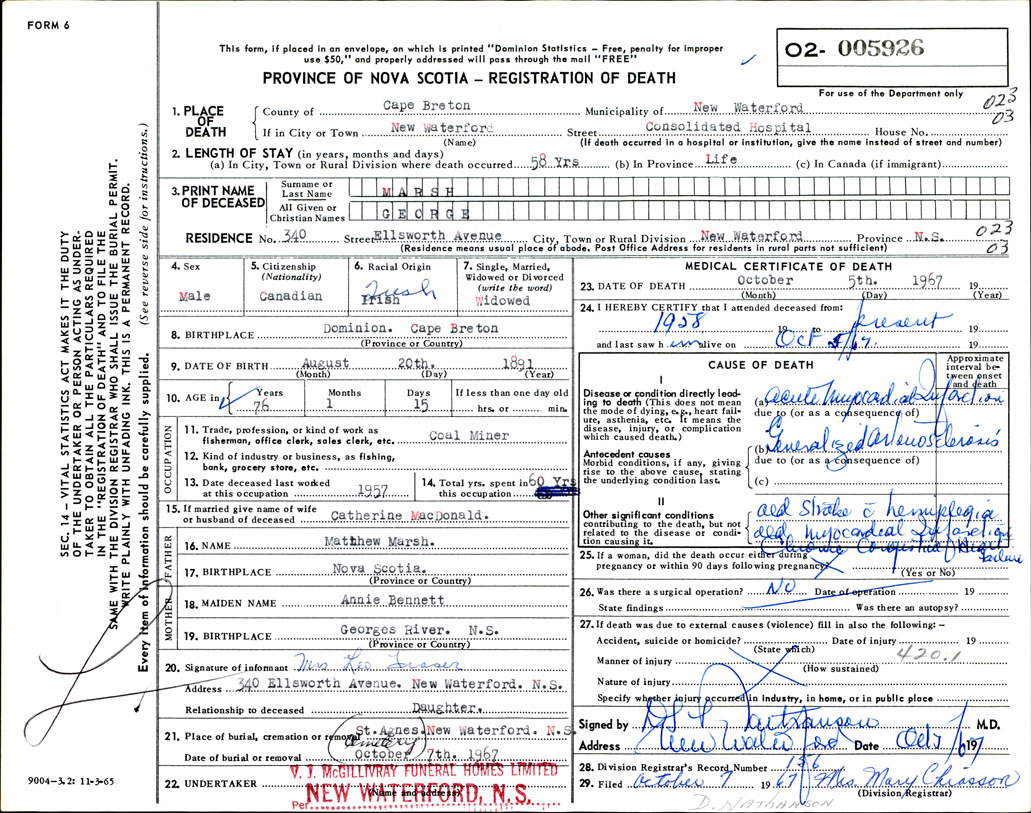 FORM 6
This form, if placed in an envelope, on which is printed "Dominion Statistics – Free, penalty for improper
use $50," and properly addressed will pass through the mail "FREE"
O2- 005926
PROVINCE OF NOVA SCOTIA – REGISTRATION OF DEATH
For use of the Department only
023
03
1. PLACE OF DEATH
County of Cape Breton Municipality of New Waterford
If in City or Town New Waterford Street Consolidated Hospital House No.
(Name) (If death occurred in a hospital or institution, give the name instead of street and number)
2. LENGTH OF STAY (in years, months and days)
(a) In City, Town or Rural Division where death occurred 58 Yrs (b) In Province Life (c) In Canada (if immigrant)
3. PRINT NAME OF DECEASED
Surname or Last Name MARSH
All Given or Christian Names GEORGE
RESIDENCE No. 340 Street Ellsworth Avenue City, Town or Rural Division New Waterford Province N.S.
(Residence means usual place of abode. Post Office Address for residents in rural parts not sufficient)
023
03
4. Sex
Male
5. Citizenship
(Nationality)
Canadian
6. Racial Origin
Irish
Irish
7. Single, Married,
Widowed or Divorced
(write the word)
Widowed
8. BIRTHPLACE Dominion. Cape Breton
(Province or Country)
9. DATE OF BIRTH August 20th. 1891
(Month) (Day) (Year)
10. AGE in Years 76 Months 1 Days 15 If less than one day old
hrs. or min.
OCCUPATION
11. Trade, profession, or kind of work as
fisherman, office clerk, sales clerk, etc. Coal Miner
12. Kind of industry or business, as fishing,
bank, grocery store, etc.
13. Date deceased last worked
at this occupation 1957
14. Total yrs. spent in
this occupation 60 Yrs
15. If married give name of wife
or husband of deceased Catherine MacDonald.
FATHER
16. NAME Matthew Marsh.
17. BIRTHPLACE Nova Scotia.
(Province or Country)
MOTHER
18. MAIDEN NAME Annie Bennett
19. BIRTHPLACE Georges River. N.S.
(Province or Country)
20. Signature of informant Mrs Leo
Address 340 Ellsworth Avenue. New Waterford. N.S.
Relationship to deceased Daughter.
21. Place of burial, cremation or removal St. Agnes New Waterford. N.S.
(Cemetery)
Date of burial or removal October 7th. 1967
22. UNDERTAKER V. J. McGILLIVRAY FUNERAL HOMES LIMITED
(Name and address)
Per NEW WATERFORD, N.S.
MEDICAL CERTIFICATE OF DEATH
23. DATE OF DEATH October 5th. 1967 19
(Month) (Day) (Year)
24. I HEREBY CERTIFY that I attended deceased from:
1958 19 to present 19
and last saw h im alive on Oct 5/67. 19
CAUSE OF DEATH
Approximate
interval be-
tween onset
and death
I
Disease or condition directly lead-
ing to death (This does not mean
the mode of dying, e.g., heart fail-
ure, asthenia, etc. It means the
disease, injury, or complication
which caused death.)
(a) acute myocardial Infarction
due to (or as a consequence of)
Antecedent causes
Morbid conditions, if any, giving
rise to the above cause, stating
the underlying condition last.
(b) Generalized arteriosclerosis
due to (or as a consequence of)
(c)
II
Other significant conditions
contributing to the death, but not
related to the disease or condi-
tion causing it.
old stroke c̄ hemiplegia
old myocardial Infarction
Chronic Congestive Heart
failure
25. If a woman, did the death occur either during
pregnancy or within 90 days following pregnancy
(Yes or No)
26. Was there a surgical operation? NO Date of operation 19
State findings Was there an autopsy?
27. If death was due to external causes (violence) fill in also the following: –
Accident, suicide or homicide? Date of injury 19
(State which)
420.1
Manner of injury
(How sustained)
Nature of injury
Specify whether injury occurred in industry, in home, or in public place
Signed by Nathanson M.D.
Address New Waterford Date Oct 7/67 19
28. Division Registrar's Record Number 136
29. Filed October 7 1967 Mrs. Mary Chiasson
(Division Registrar)
D. NATHANSON
SEC. 14 – VITAL STATISTICS ACT MAKES IT THE DUTY
OF THE UNDERTAKER OR PERSON ACTING AS UNDER-
TAKER TO OBTAIN ALL THE PARTICULARS REQUIRED
IN THE "REGISTRATION OF DEATH" AND TO FILE THE
SAME WITH THE DIVISION REGISTRAR WHO SHALL ISSUE THE BURIAL PERMIT.
WRITE PLAINLY WITH UNFADING INK. THIS IS A PERMANENT RECORD.
Every item of information should be carefully supplied. (See reverse side for instructions.)
9004-3.2: 11-3-65